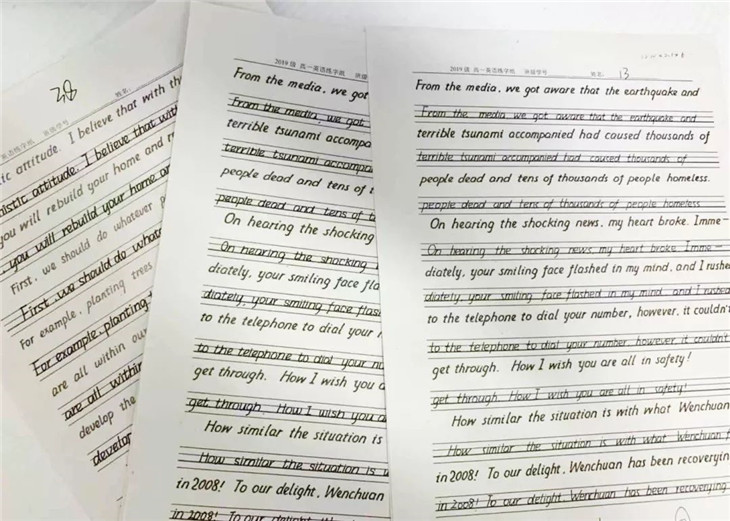 班级学号 姓名:
tic attitude. I believe that with th
nistic attitude. I believe that wit
you will rebuild your home and r
, you will rebuild your home an
First, we should do whatever p
First, we should do what
For example, planting trees
For example, planting
are all within ou
are all within
develop the
develop
2019级 高一英语练字纸 班级
From the media, we got
From the media, we got
terrible tsunami accompa
terrible tsunami accompa
people dead and tens of t
people dead and tens of t
On hearing the shocking
On hearing the shocking
diately, your smiling face fla
diately, your smiling face flas
to the telephone to dial your
to the telephone to dial your nu
get through. How I wish you a
get through. How I wish you a
How similar the situation is
How similar the situation is w
in 2008! To our delight, Wenchuan
in 2008! To our delight, Wenchuan
2019级 高一英语练字纸 班级学号 姓名: 13
From the media, we got aware that the earthquake and
From the media, we got aware that the earthquake and
terrible tsunami accompanied had caused thousands of
terrible tsunami accompanied had caused thousands of
people dead and tens of thousands of people homeless.
people dead and tens of thousands of people homeless.
On hearing the shocking news, my heart broke. Imme-
On hearing the shocking news, my heart broke. Imme-
diately, your smiling face flashed in my mind, and I rushed
diately, your smiling face flashed in my mind, and I rushed
to the telephone to dial your number, however, it couldn't
to the telephone to dial your number, however, it couldn't
get through. How I wish you are all in safety!
get through. How I wish you are all in safety!
How similar the situation is with what Wenchuan
How similar the situation is with what Wenchuan
in 2008! To our delight, Wenchuan has been recoveryin
in 2008! To our delight, Wenchuan has been recovering